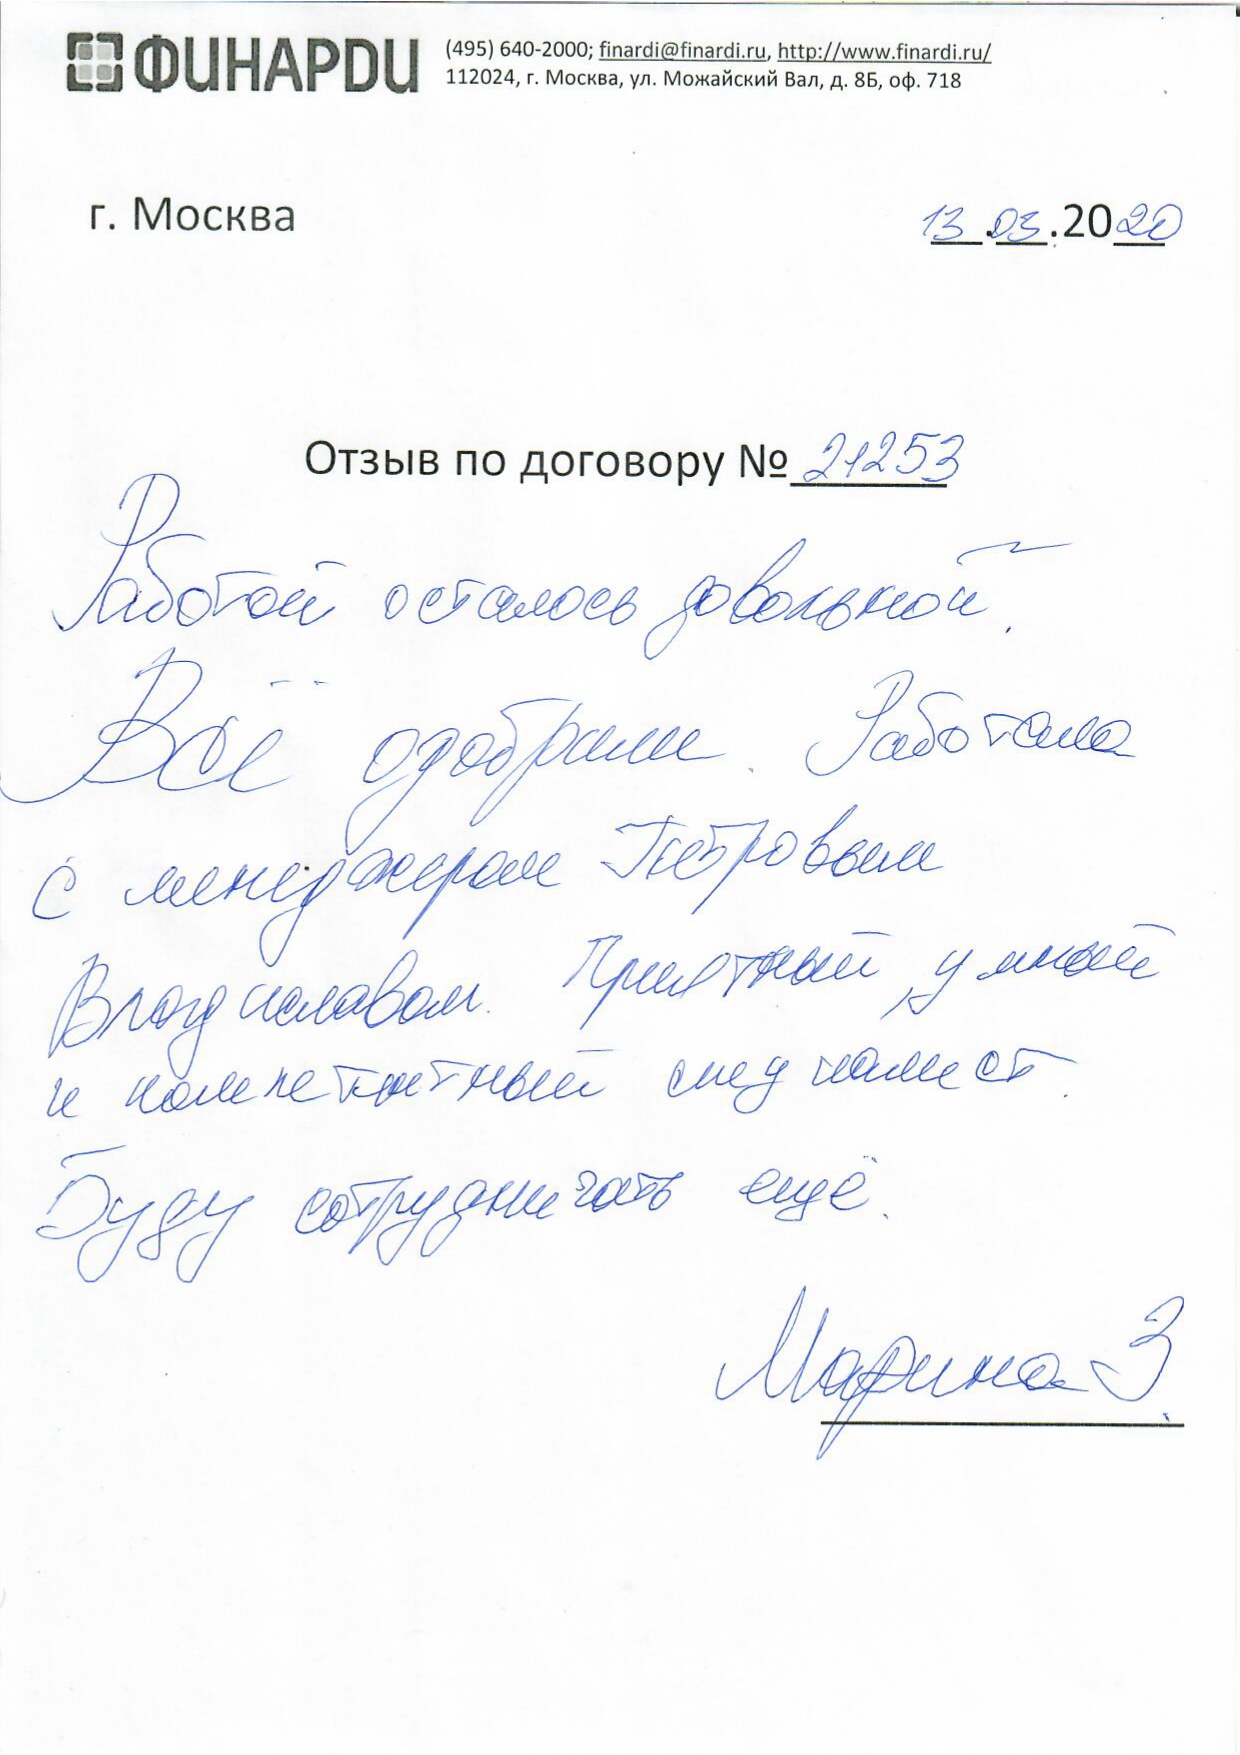 ФИНАРДИ
(495) 640-2000; finardi@finardi.ru, http://www.finardi.ru/
112024, г. Москва, ул. Можайский Вал, д. 8Б, оф. 718
г. Москва 13.03.2020
Отзыв по договору № 21253
Работой осталось довольной.
Всё одобрили. Работала
с менеджером Петровым
Владиславом. Приятный умный
и компетентный специалист.
Буду сотрудничать ещё.
Марина З.